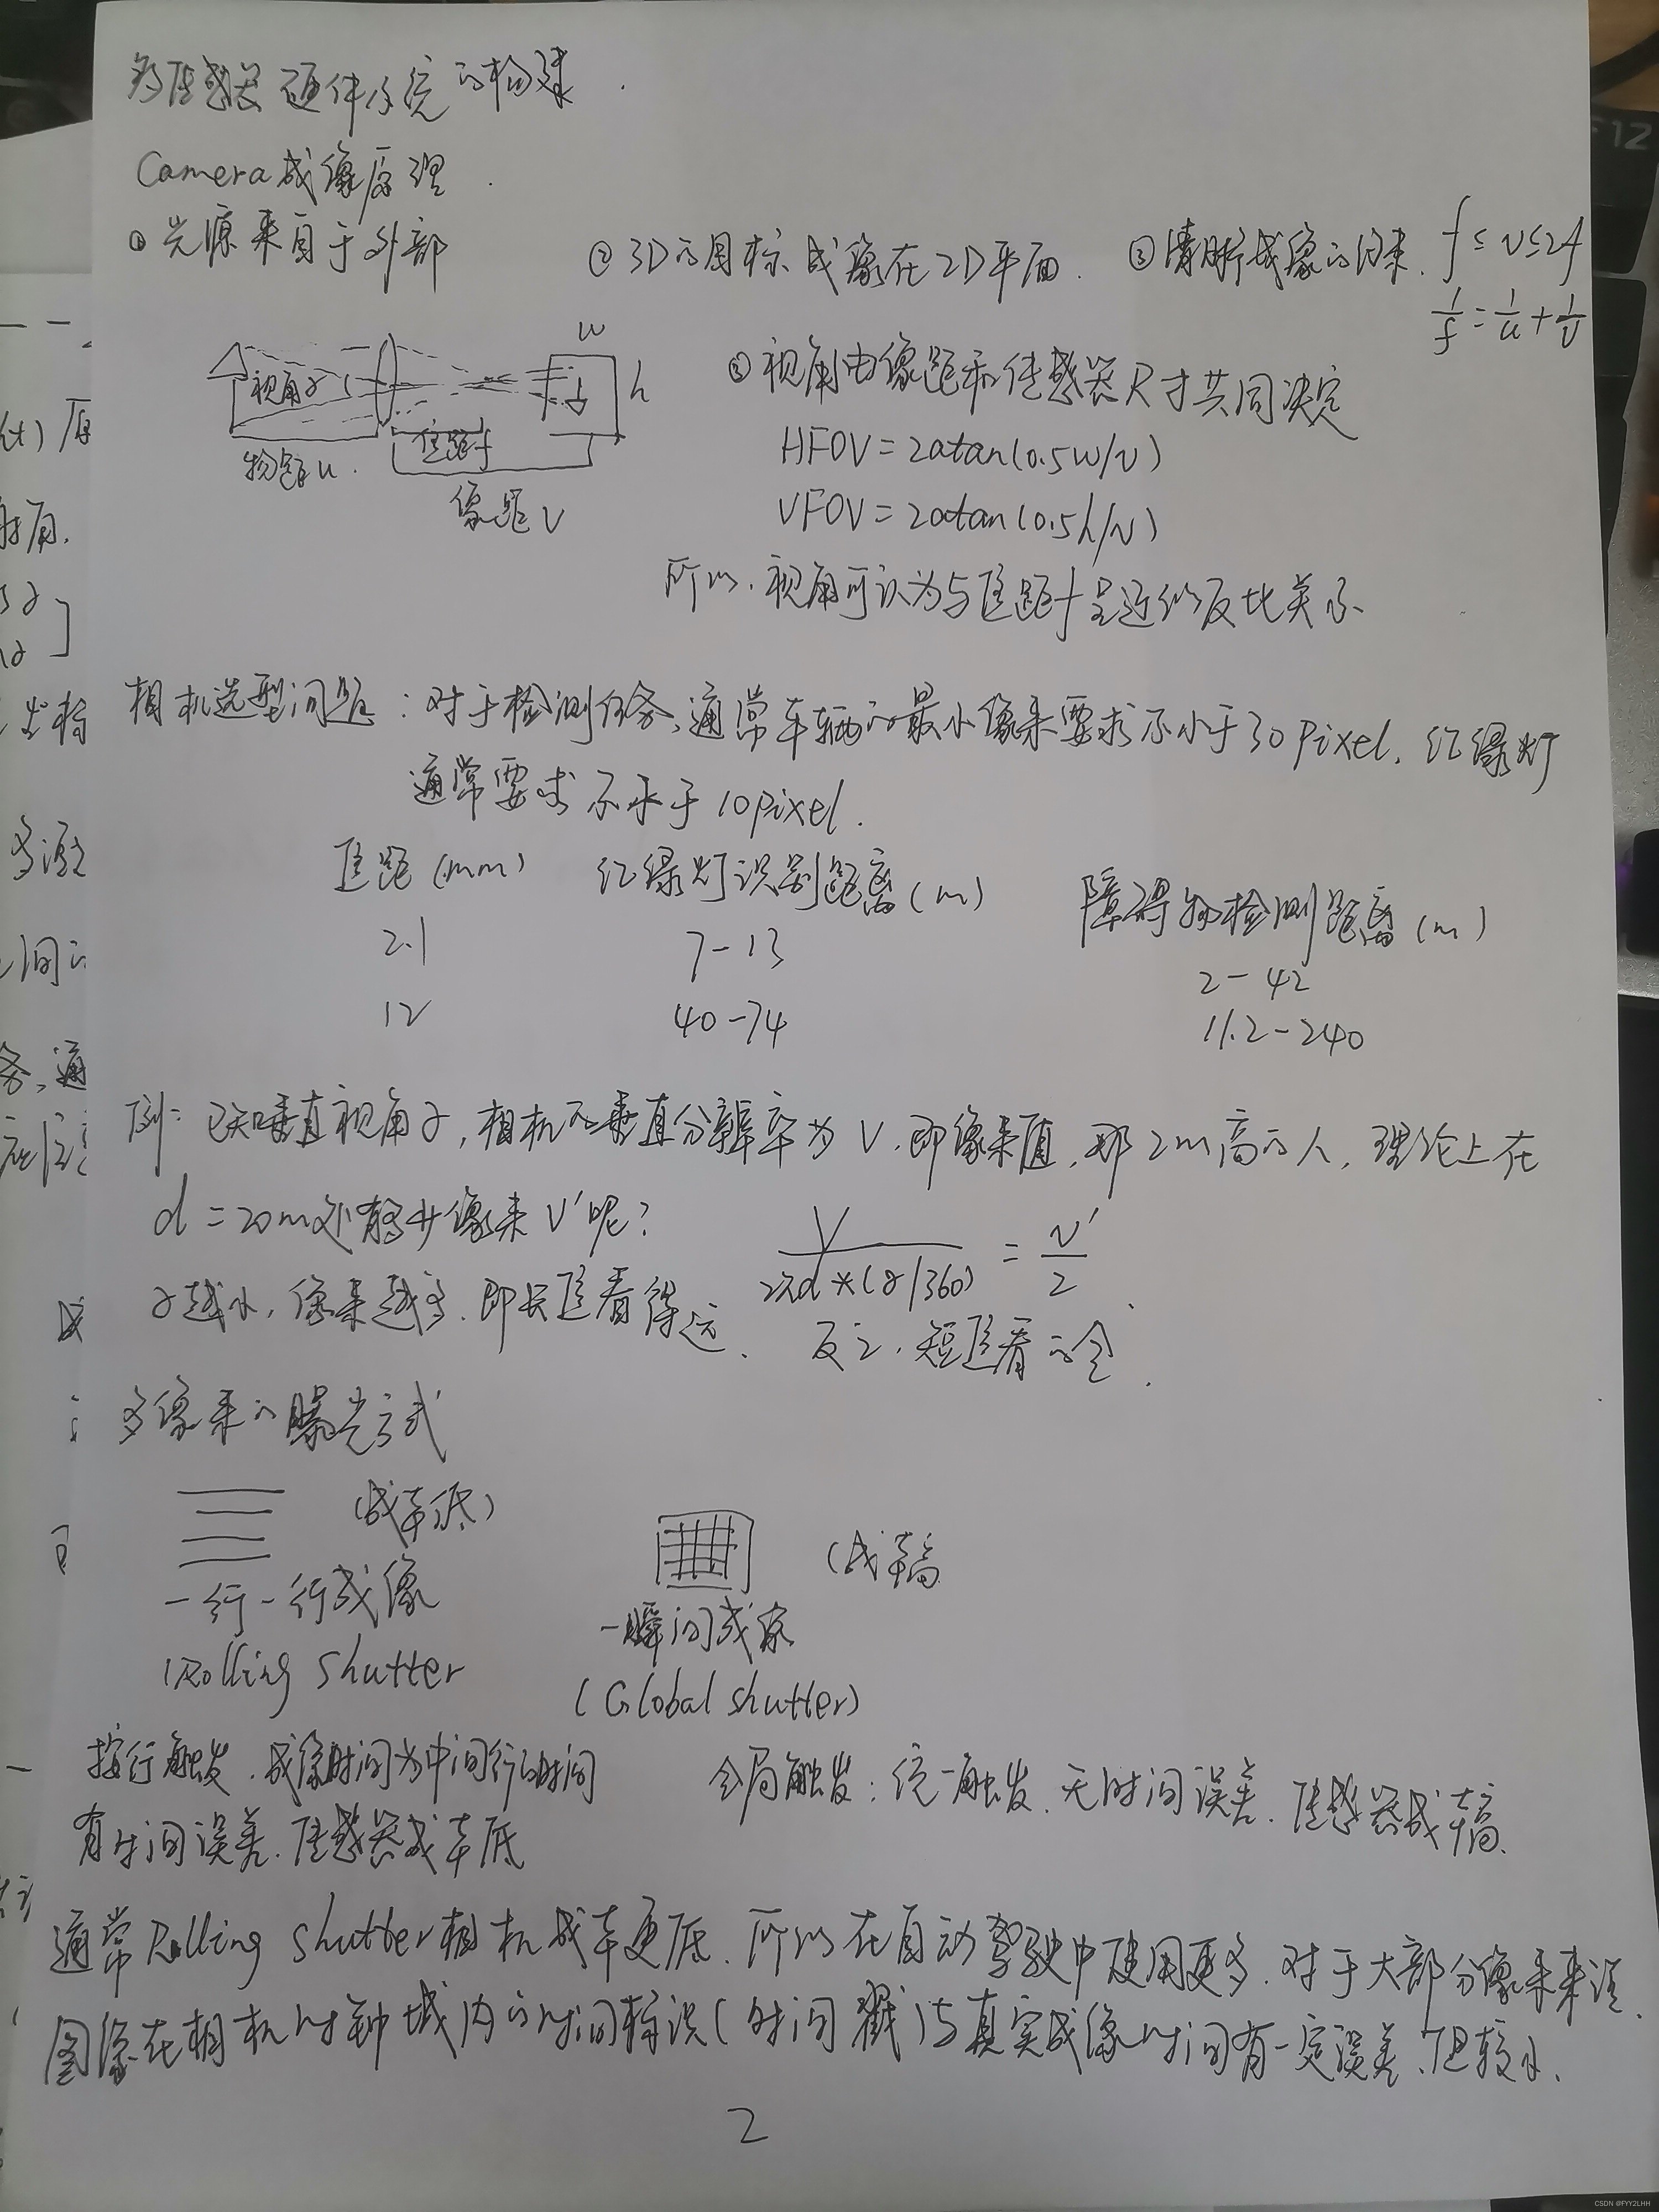 多传感器硬件系统的构建
Camera成像原理
① 光源来自于外部 ② 3D的目标成像在2D平面 ③ 清晰成像的约束 f≤v≤2f
1/f=1/u+1/v
w
h
视角α
焦距f
物距u
像距V
③ 视角由像距和传感器尺寸共同决定
HFOV=2atan(0.5w/v)
VFOV=2atan(0.5h/v)
所以,视角可认为与焦距f呈近似反比关系
相机选型问题:对于检测任务,通常车辆的最小像素要求不小于30pixel,红绿灯
通常要求不小于10pixel.
焦距(mm) 红绿灯识别距离(m) 障碍物检测距离(m)
2.1 7-13 2-42
12 40-74 11.2-240
例:已知垂直视角α,相机的垂直分辨率为V,即像素值,那2m高的人,理论上在
d=20m处有多少像素V'呢? V/(2πd*(α/360))=v'/2
α越小,像素越多,即长焦看得远. 反之,短焦看的全.
多像素的曝光方式
(成本低) (成本高
一行一行成像 一瞬间成像
(Rolling shutter (Global shutter)
按行触发,成像时间为中间行的时间 全局触发:统一触发,无时间误差,传感器成本高.
有时间误差,传感器成本低
通常Rolling shutter相机成本更低,所以在自动驾驶中使用更多.对于大部分像素来说,
图像在相机时钟域内的时间标识(时间戳)与真实成像时间有一定误差,但较小.
2
F12
CSDN @FYY2LHH